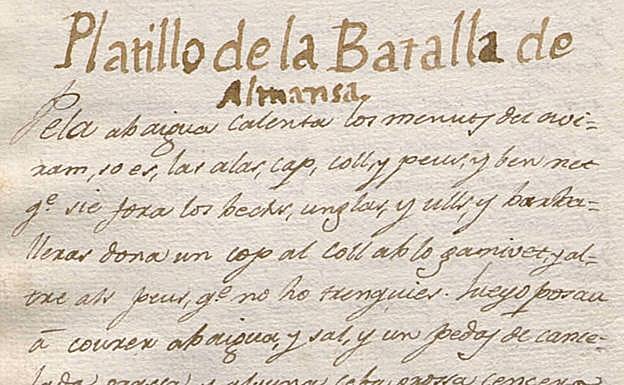 Platillo de la Batalla de
Almansa.
Pela ab aigua calenta los menuts del avi=
ram, so es, las alas, cap, coll, y peus, y ben net
qe. sie fora los bechs, unglas, y ulls, y barba=
lleras dona un cop al coll ab lo ganivet, y al=
tre als peus, qe. no ho trenquies. Lueyo posau
á courer ab aigua, y sal, y un pedas de cance=
lada y alguna ceba grossa sencera